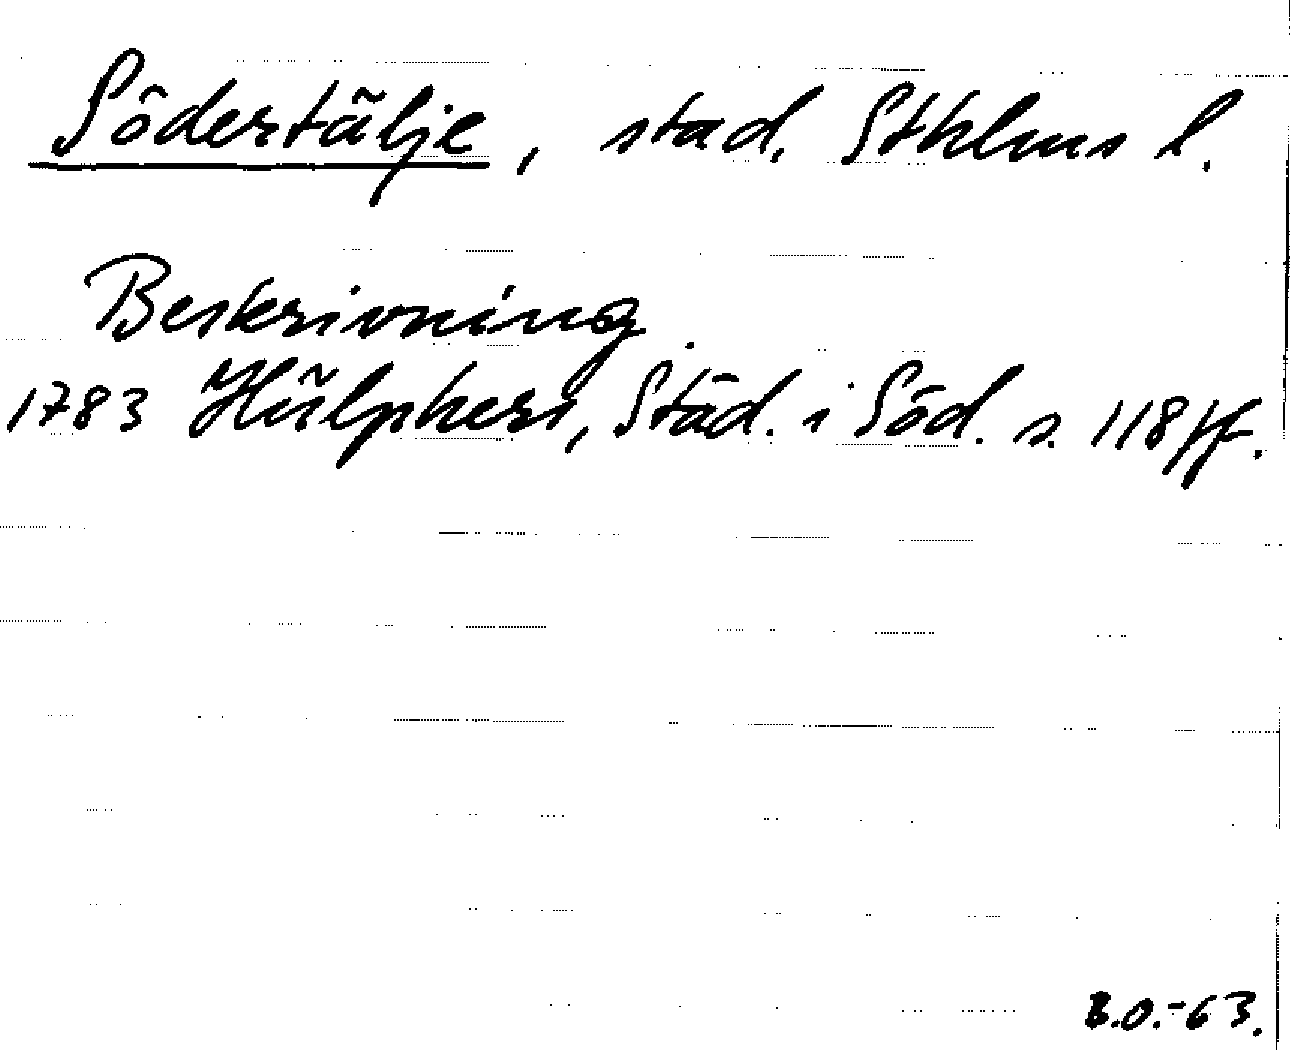 Södertälje, stad, Sthlms l.
Beskrivning.
1783 Hülphers, Städ. i Söd. s. 118ff.
B.O.-63.